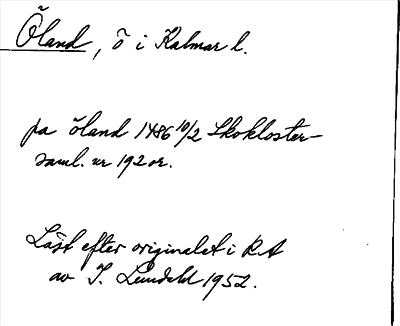 Öland, ö i Kalmar l.
pa öland 1486 10/2 Skokloster-
saml. nr 192 or.
Läst efter originalet i RA
av I. Lundahl 1952.